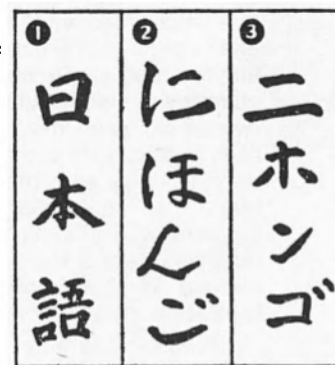 ❶
日本語
❷
にほんご
❸
ニホンゴ